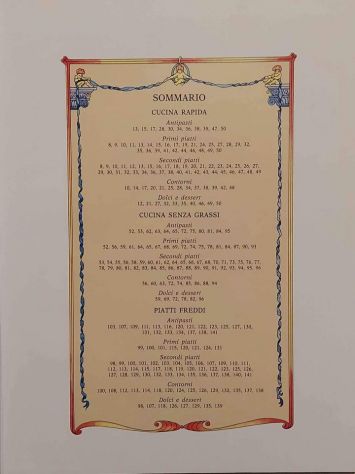 SOMMARIO
CUCINA RAPIDA
Antipasti
13, 15, 17, 28, 30, 34, 36, 38, 39, 47, 50
Primi piatti
8, 9, 10, 11, 13, 14, 15, 16, 17, 19, 21, 24, 25, 27, 28, 29, 32,
35, 36, 39, 41, 42, 44, 46, 48, 49, 50
Secondi piatti
8, 9, 10, 11, 12, 13, 15, 16, 17, 18, 19, 20, 21, 22, 23, 24, 25, 26, 27,
29, 30, 31, 32, 33, 34, 36, 37, 38, 40, 41, 42, 43, 44, 45, 46, 47, 48, 49
Contorni
10, 14, 17, 20, 21, 25, 28, 34, 37, 38, 39, 42, 48
Dolci e dessert
12, 21, 27, 32, 33, 35, 40, 46, 49, 50
CUCINA SENZA GRASSI
Antipasti
52, 53, 62, 63, 64, 65, 72, 75, 80, 81, 84, 95
Primi piatti
52, 56, 59, 61, 64, 65, 67, 68, 69, 72, 74, 75, 78, 81, 84, 87, 90, 93
Secondi piatti
53, 54, 55, 56, 58, 59, 60, 61, 62, 64, 65, 66, 67, 68, 70, 71, 73, 75, 76, 77,
78, 79, 80, 81, 82, 83, 84, 85, 86, 87, 88, 89, 90, 91, 92, 93, 94, 95, 96
Contorni
56, 60, 63, 72, 74, 85, 86, 88, 94
Dolci e dessert
59, 69, 72, 78, 82, 96
PIATTI FREDDI
Antipasti
103, 107, 109, 111, 113, 116, 120, 121, 122, 123, 125, 127, 130,
131, 132, 133, 134, 137, 138, 141
Primi piatti
99, 100, 101, 115, 120, 121, 124, 131
Secondi piatti
98, 99, 100, 101, 102, 103, 104, 105, 106, 107, 109, 110, 111,
112, 113, 114, 115, 117, 118, 119, 120, 121, 122, 123, 125, 126,
127, 128, 129, 130, 132, 133, 134, 136, 137, 138, 140, 141
Contorni
100, 108, 112, 113, 114, 118, 120, 124, 125, 126, 129, 132, 135, 137, 138
Dolci e dessert
98, 107, 118, 126, 127, 129, 135, 139